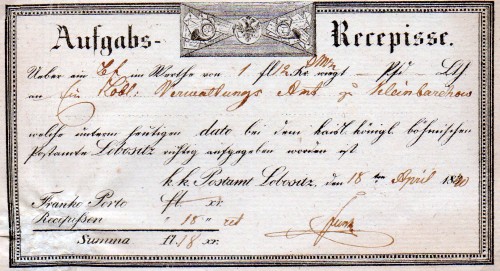 Aufgabs- Recepisse.
Ueber ein im Werthe von 1 fl 12 Kr. wiegt — Pfd. Lth
an Ein Löbl: Verwaltungs Amt zu Kleinbarchow
welche unterm heutigen dato bei dem kaisl. königl. böhmischen
Postamte Lobositz richtig aufgegeben worden ist
k. k. Postamt Lobositz, den 18 ten April 1840
Franko Porto ft xr.
Recepißen " 18 "
Summa fl. 18 xr.